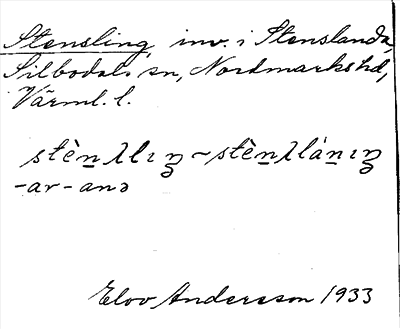 Stensling, inv. i Stenslanda,
Silbodals sn, Nordmarks hd,
Värml. l.
stèn̲λlɪŋ ~ stèn̲λlán̲ɪŋ
-ar -anə
Elov Andersson 1933